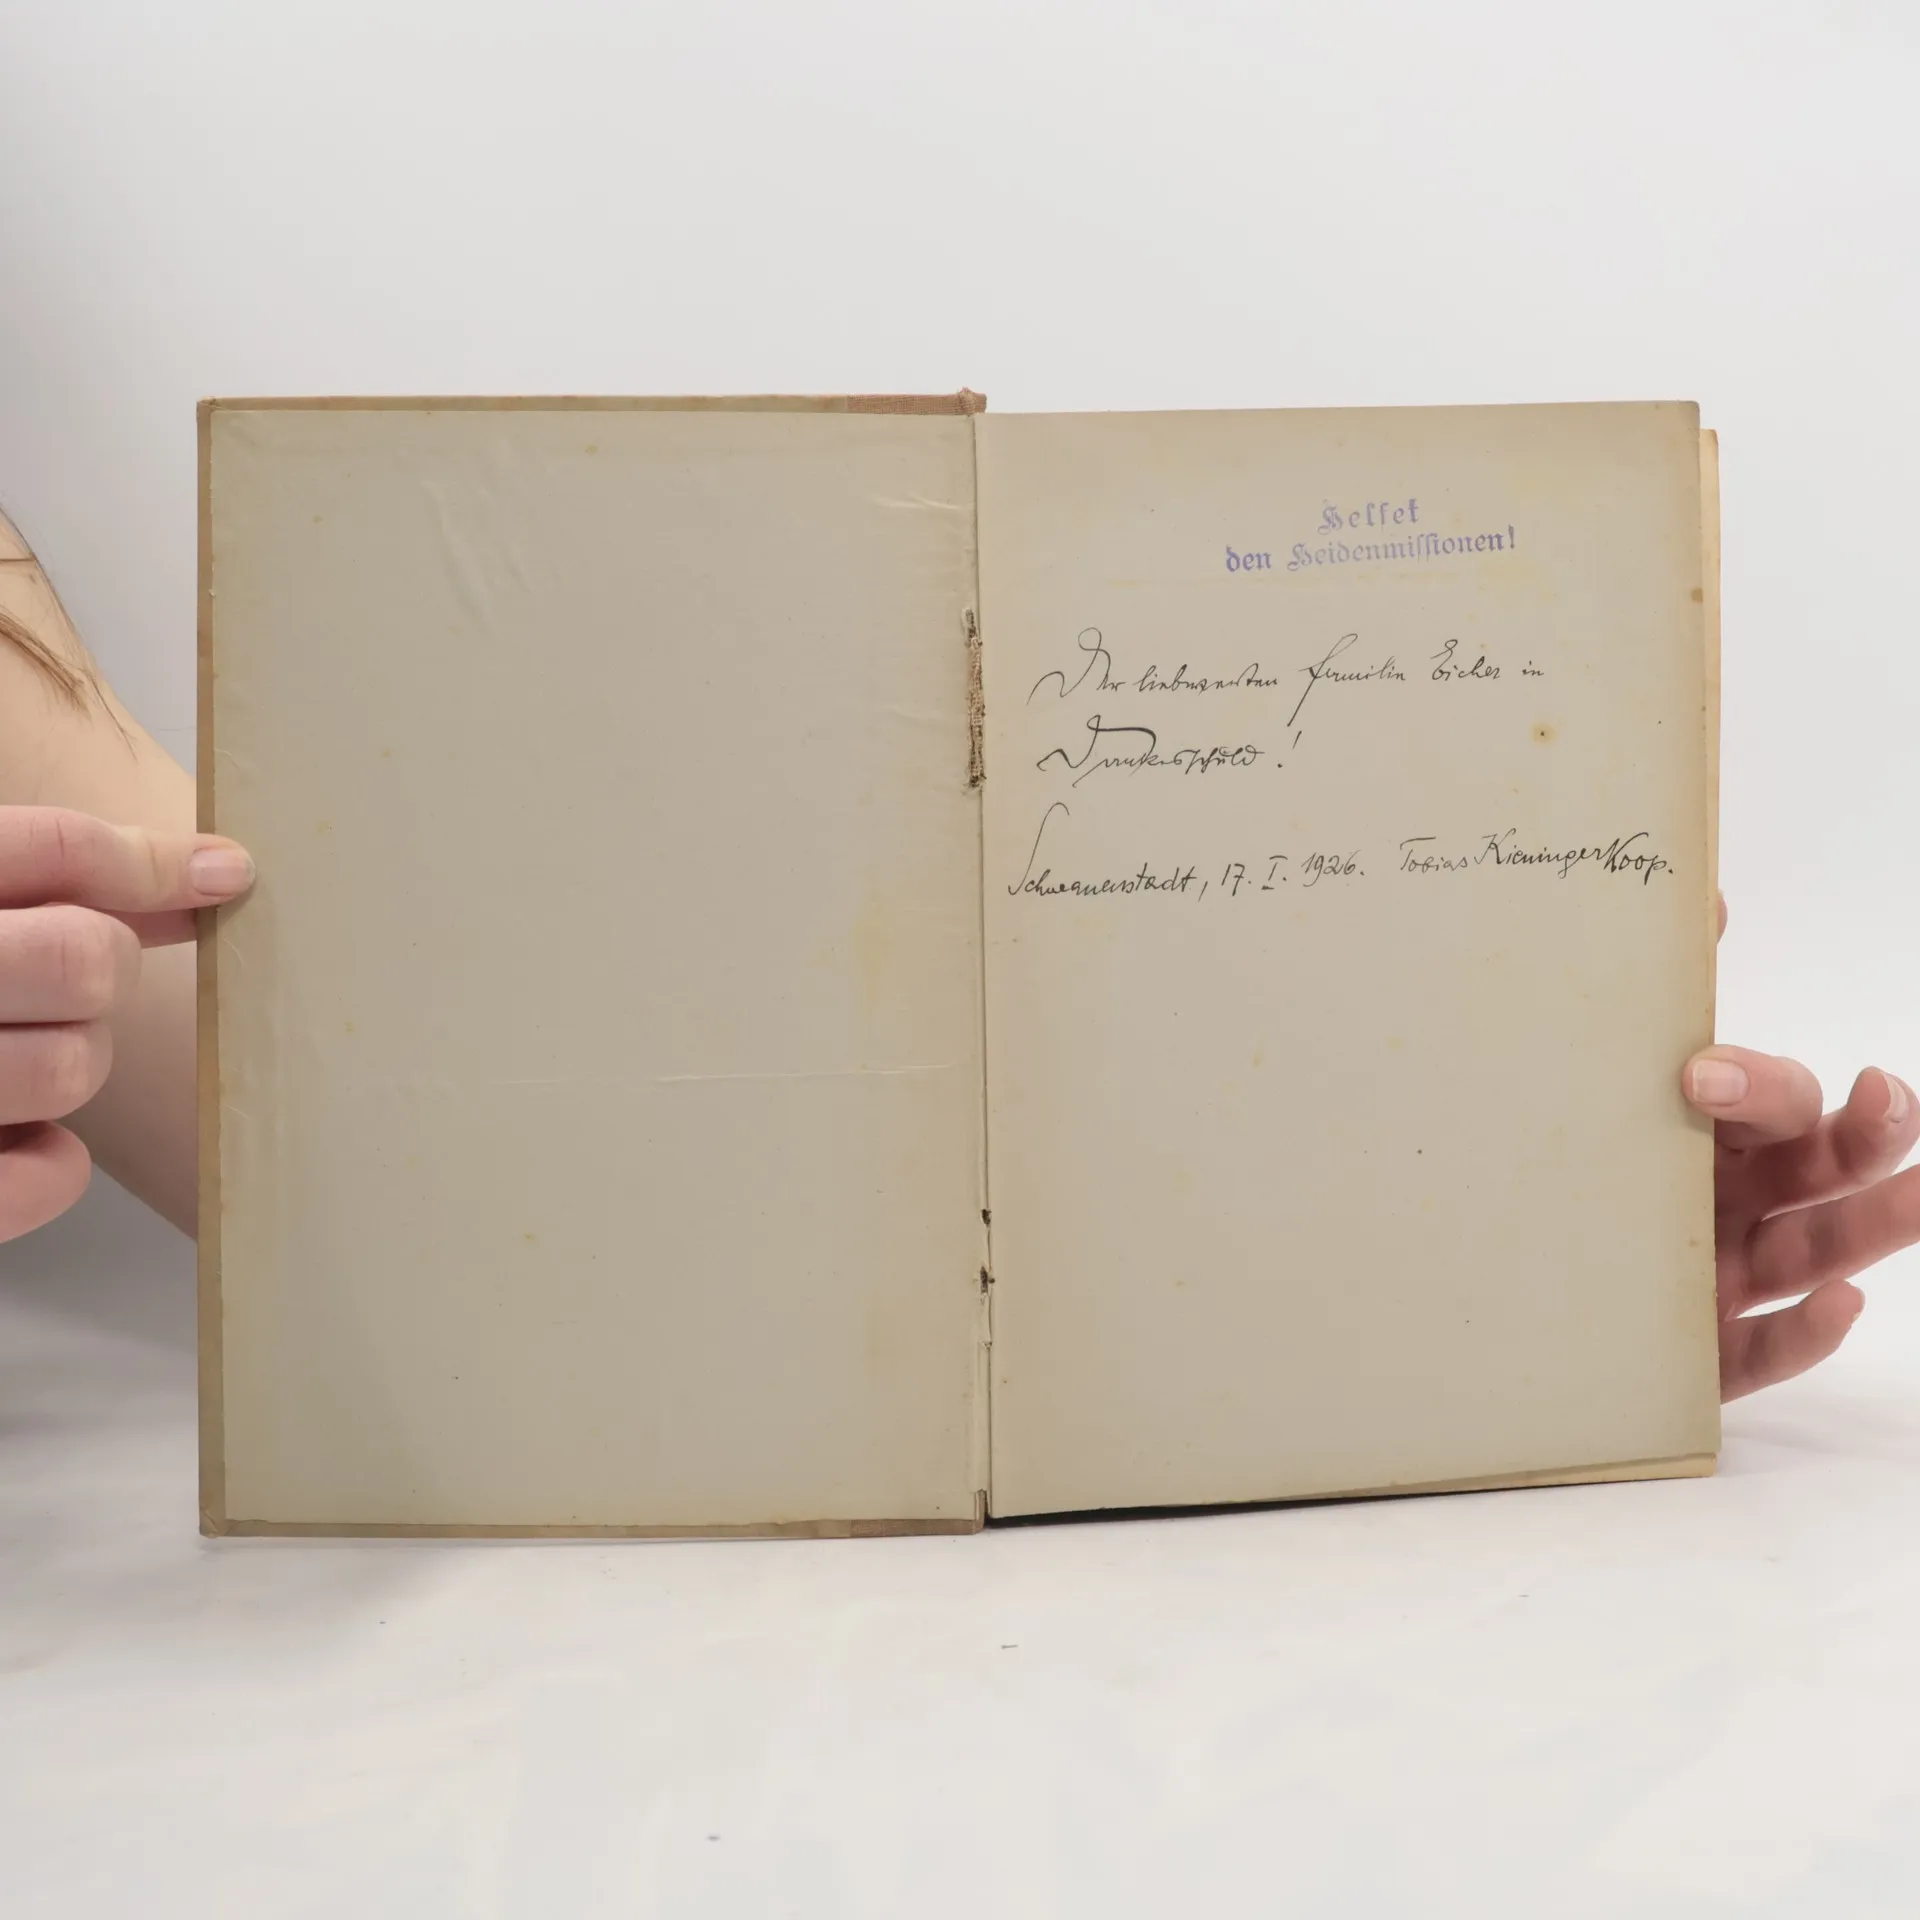 Helfet
den Heidenmissionen!
Der liebwerten Familie Eicher in
Dankesschuld!
Schwanenstadt, 17. I. 1926. Tobias Kieninger Koop.